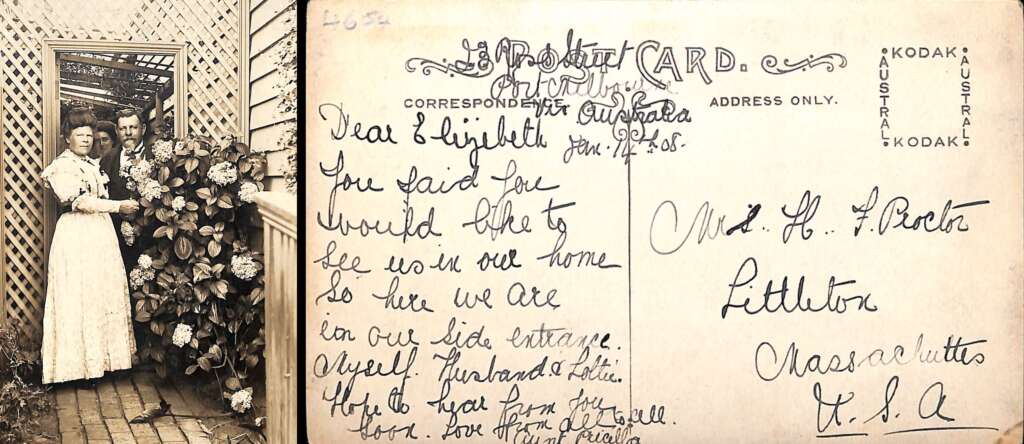 4654
POST CARD.
Street
Port Melbourne
Vic Australia
CORRESPONDENCE
ADDRESS ONLY.
AUSTRAL
KODAK
AUSTRAL
KODAK
Jan. 14th. 08.
Dear Elizibeth
You said you
would like to
see us in our home
So here we are
in our side entrance.
Myself. Husband & Lottie.
Hope to hear from you
soon. Love from all to all.
Aunt Pricilla
Mrs. H. F. Proctor
Littleton
Massachuttes
U. S. A